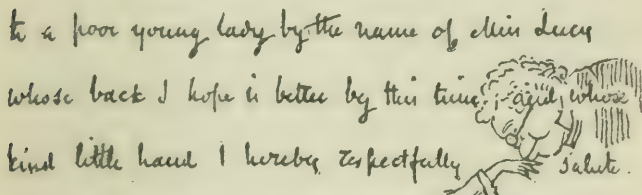 to a poor young lady by the name of Miss Lucy
whose back I hope is better by this time, and whose
kind little hand I hereby respectfully salute.